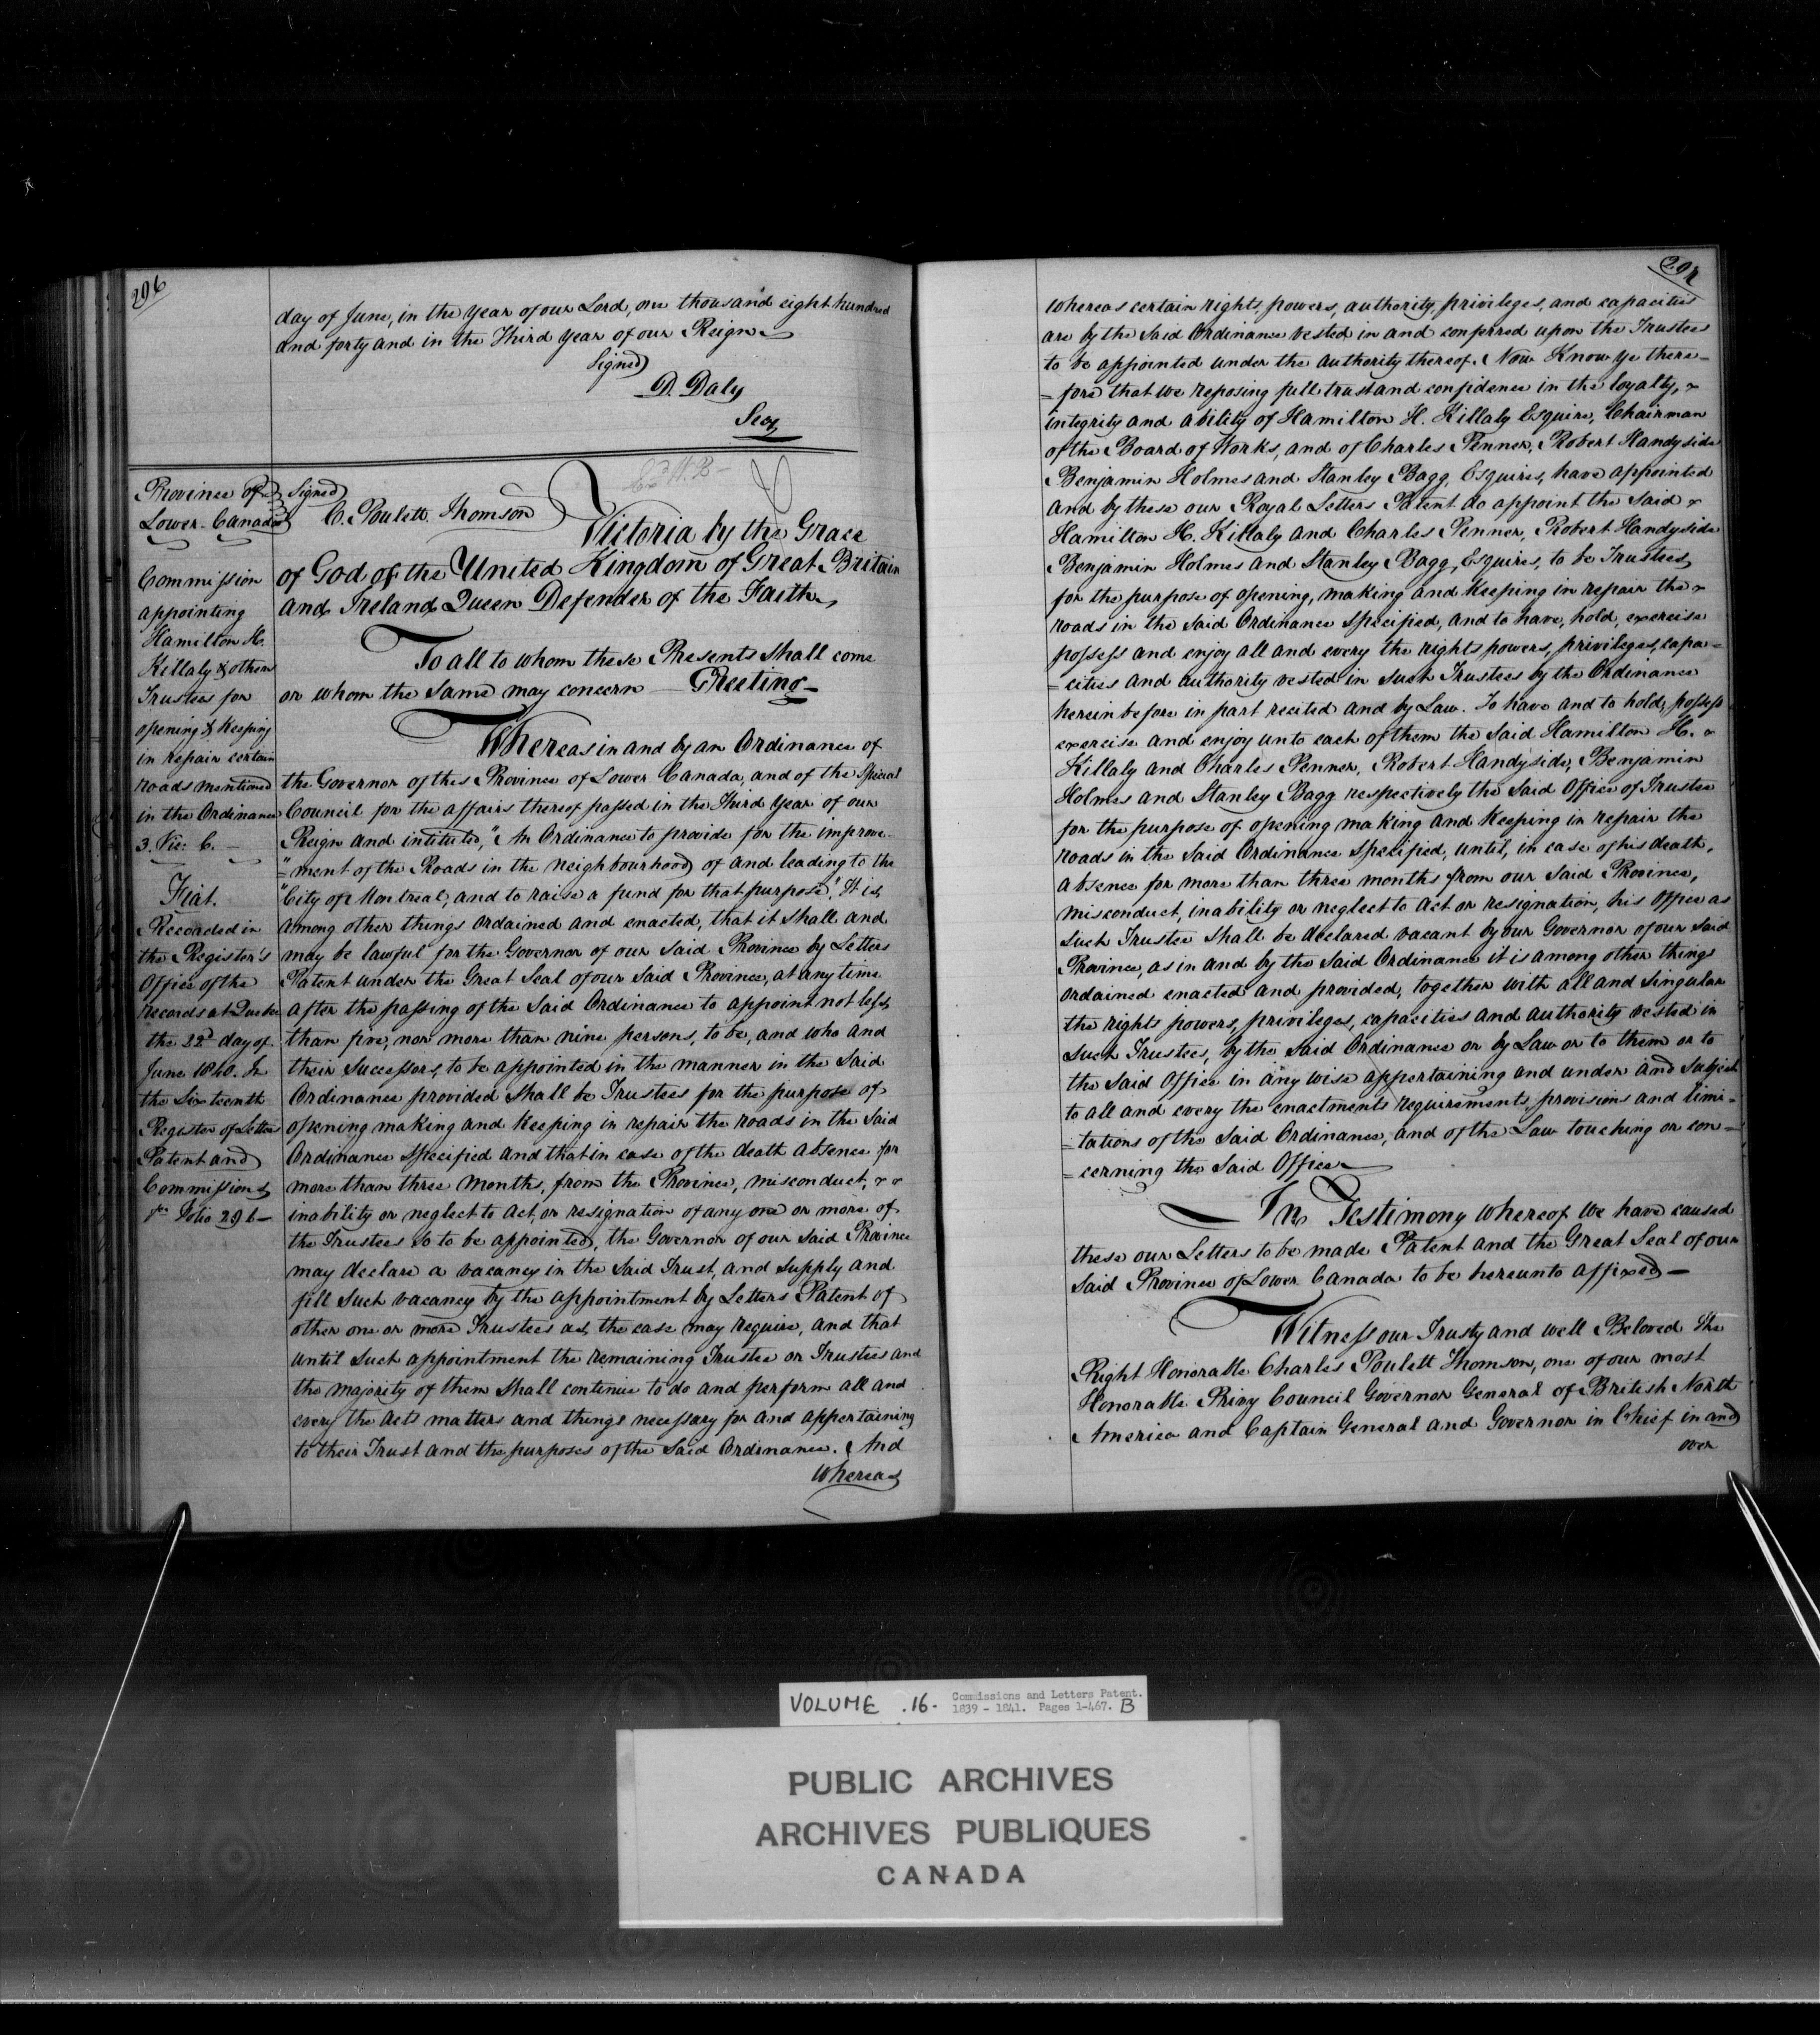 296
day of June, in the Year of our Lord, one thousand eight hundred
and forty and in the Third Year of our Reign
Signed
D. Daly
Secy
Province of
Lower-Canada
Signed
C. Poulett Thomson
Commission
appointing
Hamilton H.
Killaly & others
Trustees for
opening & keeping
in repair certain
roads mentioned
in the Ordinance
3. Vic: C. —
Fiat.
Recorded in
the Register's
Office of the
records at Quebec
the 22d day of
June 1840. In
the Sixteenth
Register of Letters
Patent and
Commissions
folio 296—
Victoria by the Grace
of God of the United Kingdom of Great Britain
and Ireland Queen Defender of the Faith
To all to whom these Presents shall come
or whom the same may concern — Greeting —
Whereas in and by an Ordinance of
the Governor of this Province of Lower Canada, and of the Special
Council for the affairs thereof passed in the Third Year of our
Reign and intituled, "An Ordinance to provide for the improve-
"=ment of the Roads in the neighbourhood of and leading to the
"City of Montreal, and to raise a fund for that purpose". It is,
among other things ordained and enacted, that it shall and
may be lawful for the Governor of our said Province by Letters
Patent under the Great Seal of our said Province, at any time
after the passing of the said Ordinance to appoint not less,
than five, nor more than nine persons, to be, and who and
their successors, to be appointed in the manner in the said
Ordinance provided shall be Trustees for the purpose of
opening making and keeping in repair the roads in the said
Ordinance specified and that in case of the death absence for
more than three months, from the Province, misconduct,
inability or neglect to act, or resignation of any one or more of
the Trustees so to be appointed, the Governor of our said Province
may declare a vacancy in the said Trust, and supply and
fill such vacancy by the appointment by Letters Patent of
other one or more Trustees as, the case may require, and that
until such appointment the remaining Trustee or Trustees and
the majority of them shall continue to do and perform all and
every the acts matters and things necessary for and appertaining
to their Trust and the purposes of the said Ordinance. And
Whereas
297
Whereas certain rights, powers, authority, privileges, and capacities
are by the said Ordinance vested in and conferred upon the Trustees
to be appointed under the authority thereof. Now Know Ye there=
=fore that we reposing full trust and confidence in the loyalty,
integrity and ability of Hamilton H. Killaly Esquire, Chairman
of the Board of Works, and of Charles Penner, Robert Handyside
Benjamin Holmes and Stanley Bagg, Esquires, have appointed
and by these our Royal Letters Patent do appoint the said
Hamilton H. Killaly and Charles Penner, Robert Handyside
Benjamin Holmes and Stanley Bagg, Esquires, to be Trustees,
for the purpose of opening, making and keeping in repair the
roads in the said Ordinance specified, and to have, hold, exercise
possess and enjoy all and every the rights, powers, privileges, capa=
=cities and authority vested in such Trustees by the Ordinance
herein before in part recited and by Law. To have and to hold, possess
exercise and enjoy unto each of them the said Hamilton H.
Killaly and Charles Penner, Robert Handyside, Benjamin
Holmes and Stanley Bagg respectively the said Office of Trustee
for the purpose of opening making and keeping in repair the
roads in the said Ordinance specified, until, in case of his death,
absence for more than three months from our said Province,
misconduct, inability or neglect to act or resignation, his Office as
such Trustee shall be declared vacant by our Governor of our said
Province, as in and by the said Ordinance it is among other things
ordained enacted and provided, together with all and singular
the rights powers, privileges, capacities and authority vested in
such Trustees, by the said Ordinance or by Law or to them or to
the said Office in any wise appertaining and under and subject
to all and every the enactments requirements provisions and limi=
=tations of the said Ordinance, and of the Law touching or con=
=cerning the said Office
In Testimony whereof we have caused
these our Letters to be made Patent and the Great Seal of our
said Province of Lower Canada to be hereunto affixed —
Witness our Trusty and well Beloved The
Right Honorable Charles Poulett Thomson, one of our most
Honorable Privy Council Governor General of British North
America and Captain General and Governor in Chief in and
over
VOLUME .16. Commissions and Letters Patent.
1839 - 1841. Pages 1-467. B
PUBLIC ARCHIVES
ARCHIVES PUBLIQUES
CANADA